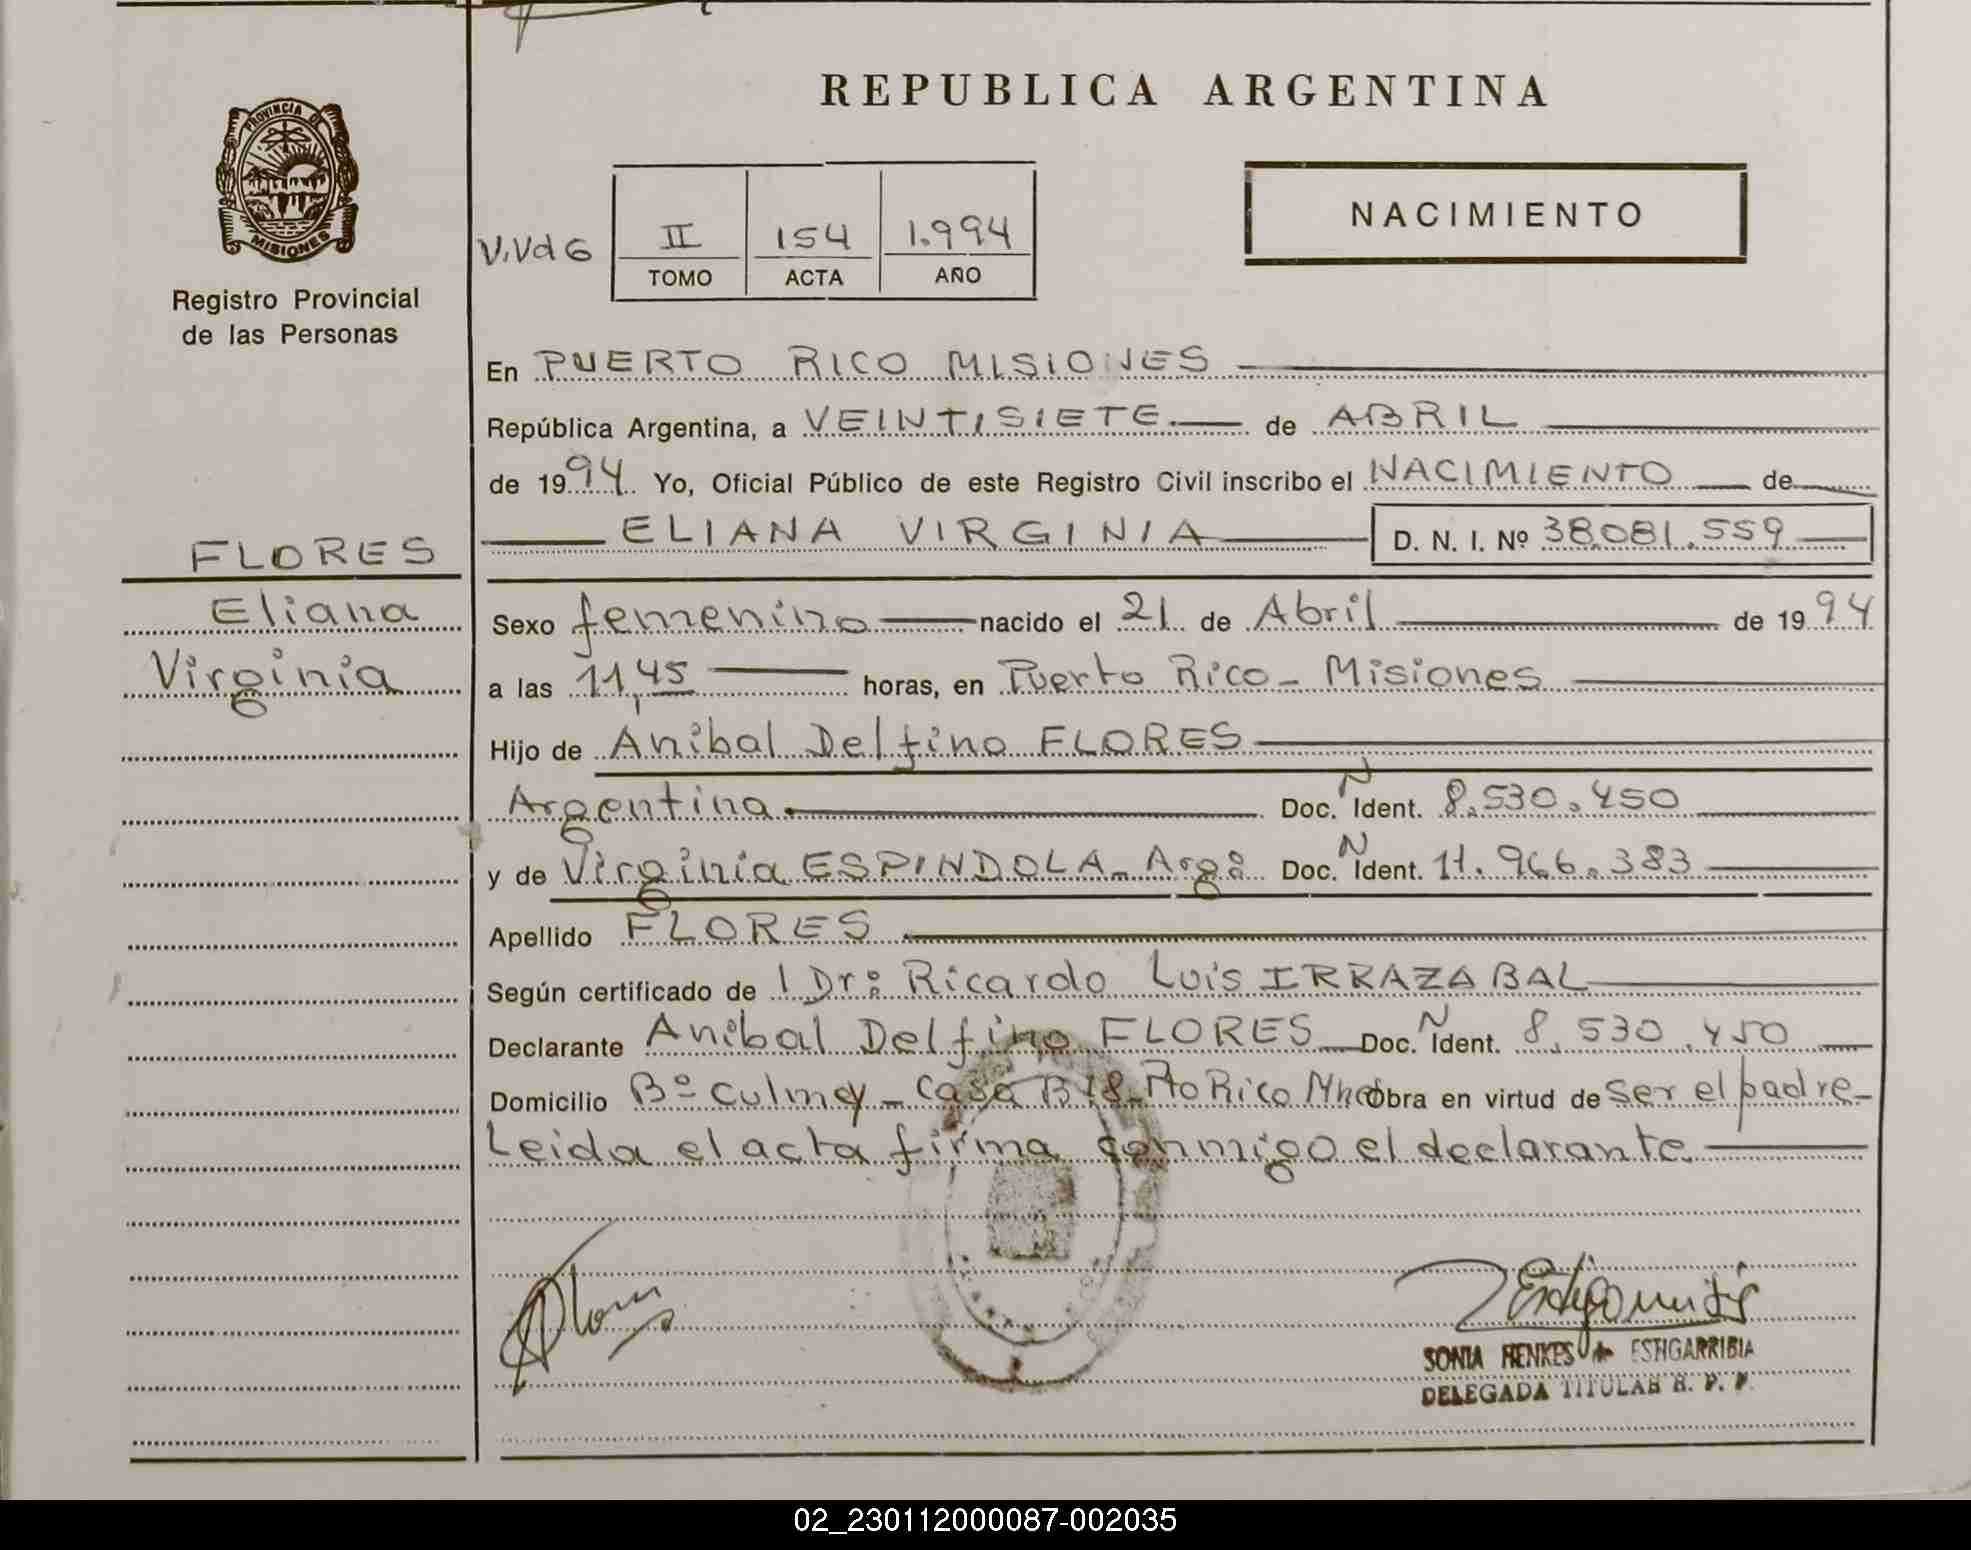 REPUBLICA ARGENTINA
PROVINCIA DE
MISIONES
Registro Provincial
de las Personas
NACIMIENTO
V.Vd6
II 154 1.994
TOMO ACTA AÑO
En PUERTO RICO MISIONES
República Argentina, a VEINTISIETE de ABRIL
de 1994 Yo, Oficial Público de este Registro Civil inscribo el NACIMIENTO de
ELIANA VIRGINIA D. N. I. Nº 38.081.559
FLORES
Eliana
Virginia
Sexo femenino nacido el 21 de Abril de 1994
a las 11,45 horas, en Puerto Rico - Misiones
Hijo de Anibal Delfino FLORES
Argentina Doc. N Ident. 8.530.450
y de Virginia ESPINDOLA - Arg: Doc. N Ident. 11.966.383
Apellido FLORES
Según certificado de l Dr: Ricardo Luis IRRAZABAL
Declarante Anibal Delfino FLORES Doc. N Ident. 8.530.450
Domicilio Bº Culmey - Casa B 18 - Pto Rico Mnes Obra en virtud de ser el padre -
Leida el acta firma conmigo el declarante
SONIA HENKES de ESTIGARRIBIA
DELEGADA TITULAR R. P. P.
02_230112000087-002035